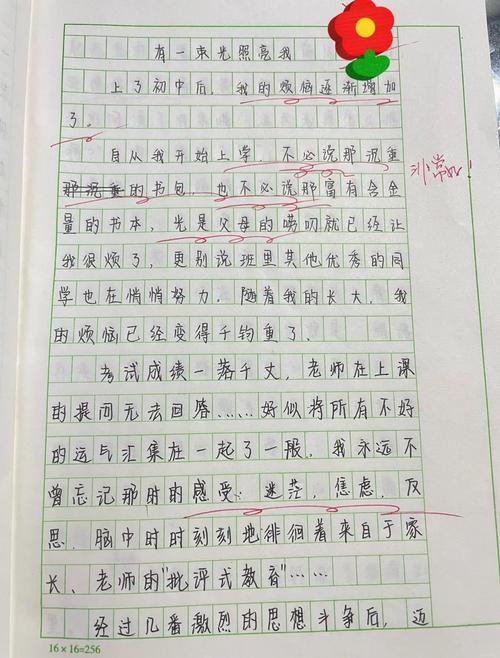 有一束光照亮我
上了初中后，我的烦恼逐渐增加
了。
自从我开始上学，不必说那沉重
那沉重的书包，也不必说那富有含金
量的书本，光是父母的唠叨就已经让
我很烦了，更别说班里其他优秀的同
学也在悄悄努力。随着我的长大，我
的烦恼已经变得千钧重了。
考试成绩一落千丈，老师在上课
的提问无法回答……好似将所有不好
的运气汇集在一起了一般，我永远不
曾忘记那时的感受：迷茫，焦虑，反
思，脑中时时刻刻地徘徊着来自于家
长、老师的"批评式教育"……
经过几番激烈的思想斗争后，迈
16×16=256
非常好！